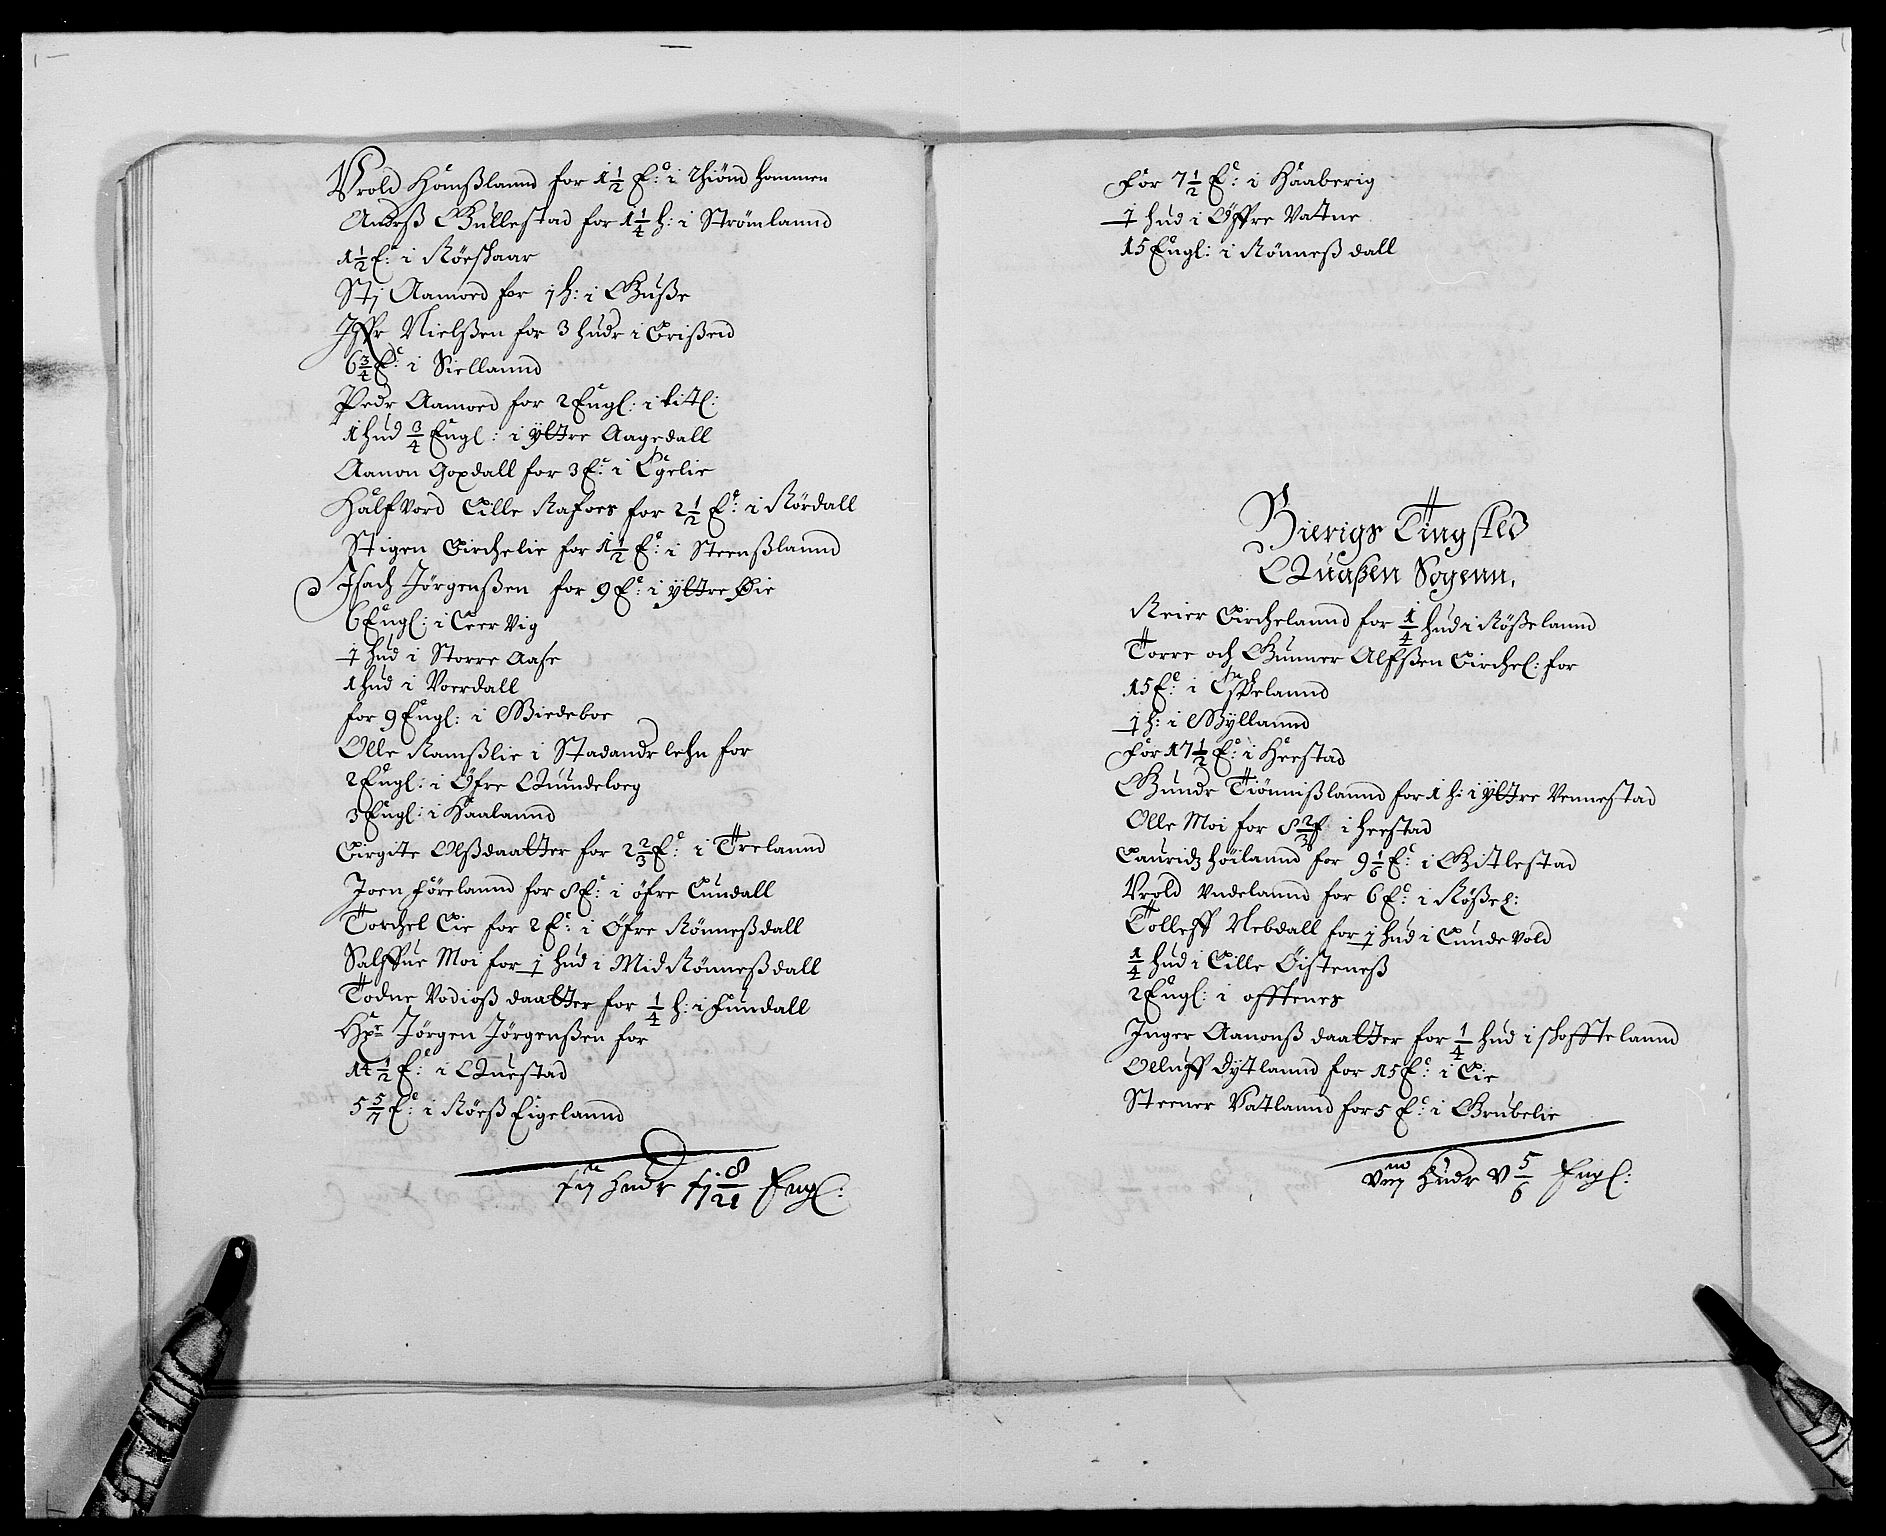 Vrold Homßlannd for 1 1/2 E: i Thiönd hommen
Anders Gullestad for 1 1/4 h: i Strömlannd
1 1/2 E: i Röeskaar
Stj Aamoed for j h: i Guße
Iffr Nielßen for 3 hudr i Erißen
6 3/4 E: i Siellannd
Pedr Aamoed for 2 Engl: i
1 hud 3/4 Engl: i yttre Aagedall
Aanon Goxdall for 3 E: i Egelie
Halfvord Lille Rafoes for 2 1/2 E: i Rördall
Stigen Birchelie for 1 1/2 E: i Steenßlannd
Isach Jörgenßen for 9 E: i yttre Øie
6 Engl: i Leervig
j hud i Storre Aase
1 hud i Voerdall
for 9 Engl: i Miedeboe
Olle Ramßlie i Stadandr lehn for
2 Engl: i Öfre Quindeloeg
3 Engl: i Kaalannd
Birgite Olßdaatter for 2 2/3 E: i Trelannd
Joen Förelannd for 8 E: i öfre Lundall
Torchel Lie for 2 E: i Öfre Rönneßdall
Salffue Moi for j hud i Mid Rönneßdall
Todne Vodioß daatter for 1/4 h: i Lundall
Hr Jörgen Jörgenßen for
11 1/2 E: i Questad
5 5/7 E: i Röeß Eigelannd
hudr 8/21 Engl:
For 7 1/2 E: i Haaberig
j hud i Öffre Vatne
15 Engl: i Rönneß dall
Bierigs Tingsted
Quaßen Sogenn,
Reier Birchelannd for 1/4 hud i Rößelannd
Torre och Gunner Alfßen Birchel: for
15 E: i Espelannd
j h: i Myllannd
For 17 1/2 E: i Heestad
Gundr Tiönnißlannd for 1 h: i yttre Vennestad
Olle Moi for 8 2/3 E: i heestad
Lauridz Höilannd for 9 1/6 E: i Gitlestad
Vrold Vndelannd for 6 E: i Rößel:
Tolleff Nebdall for j hud i Lundevold
1/4 hud i Lille Öisteneß
2 Engl: i offtenes
Inger Aanonß daatter for 1/4 hud i skofftelannd
Olluff Dytlannd for 15 E: i Lie
Steener Vatlannd for 5 E: i Grubelie
hudr V 5/6 Engl: